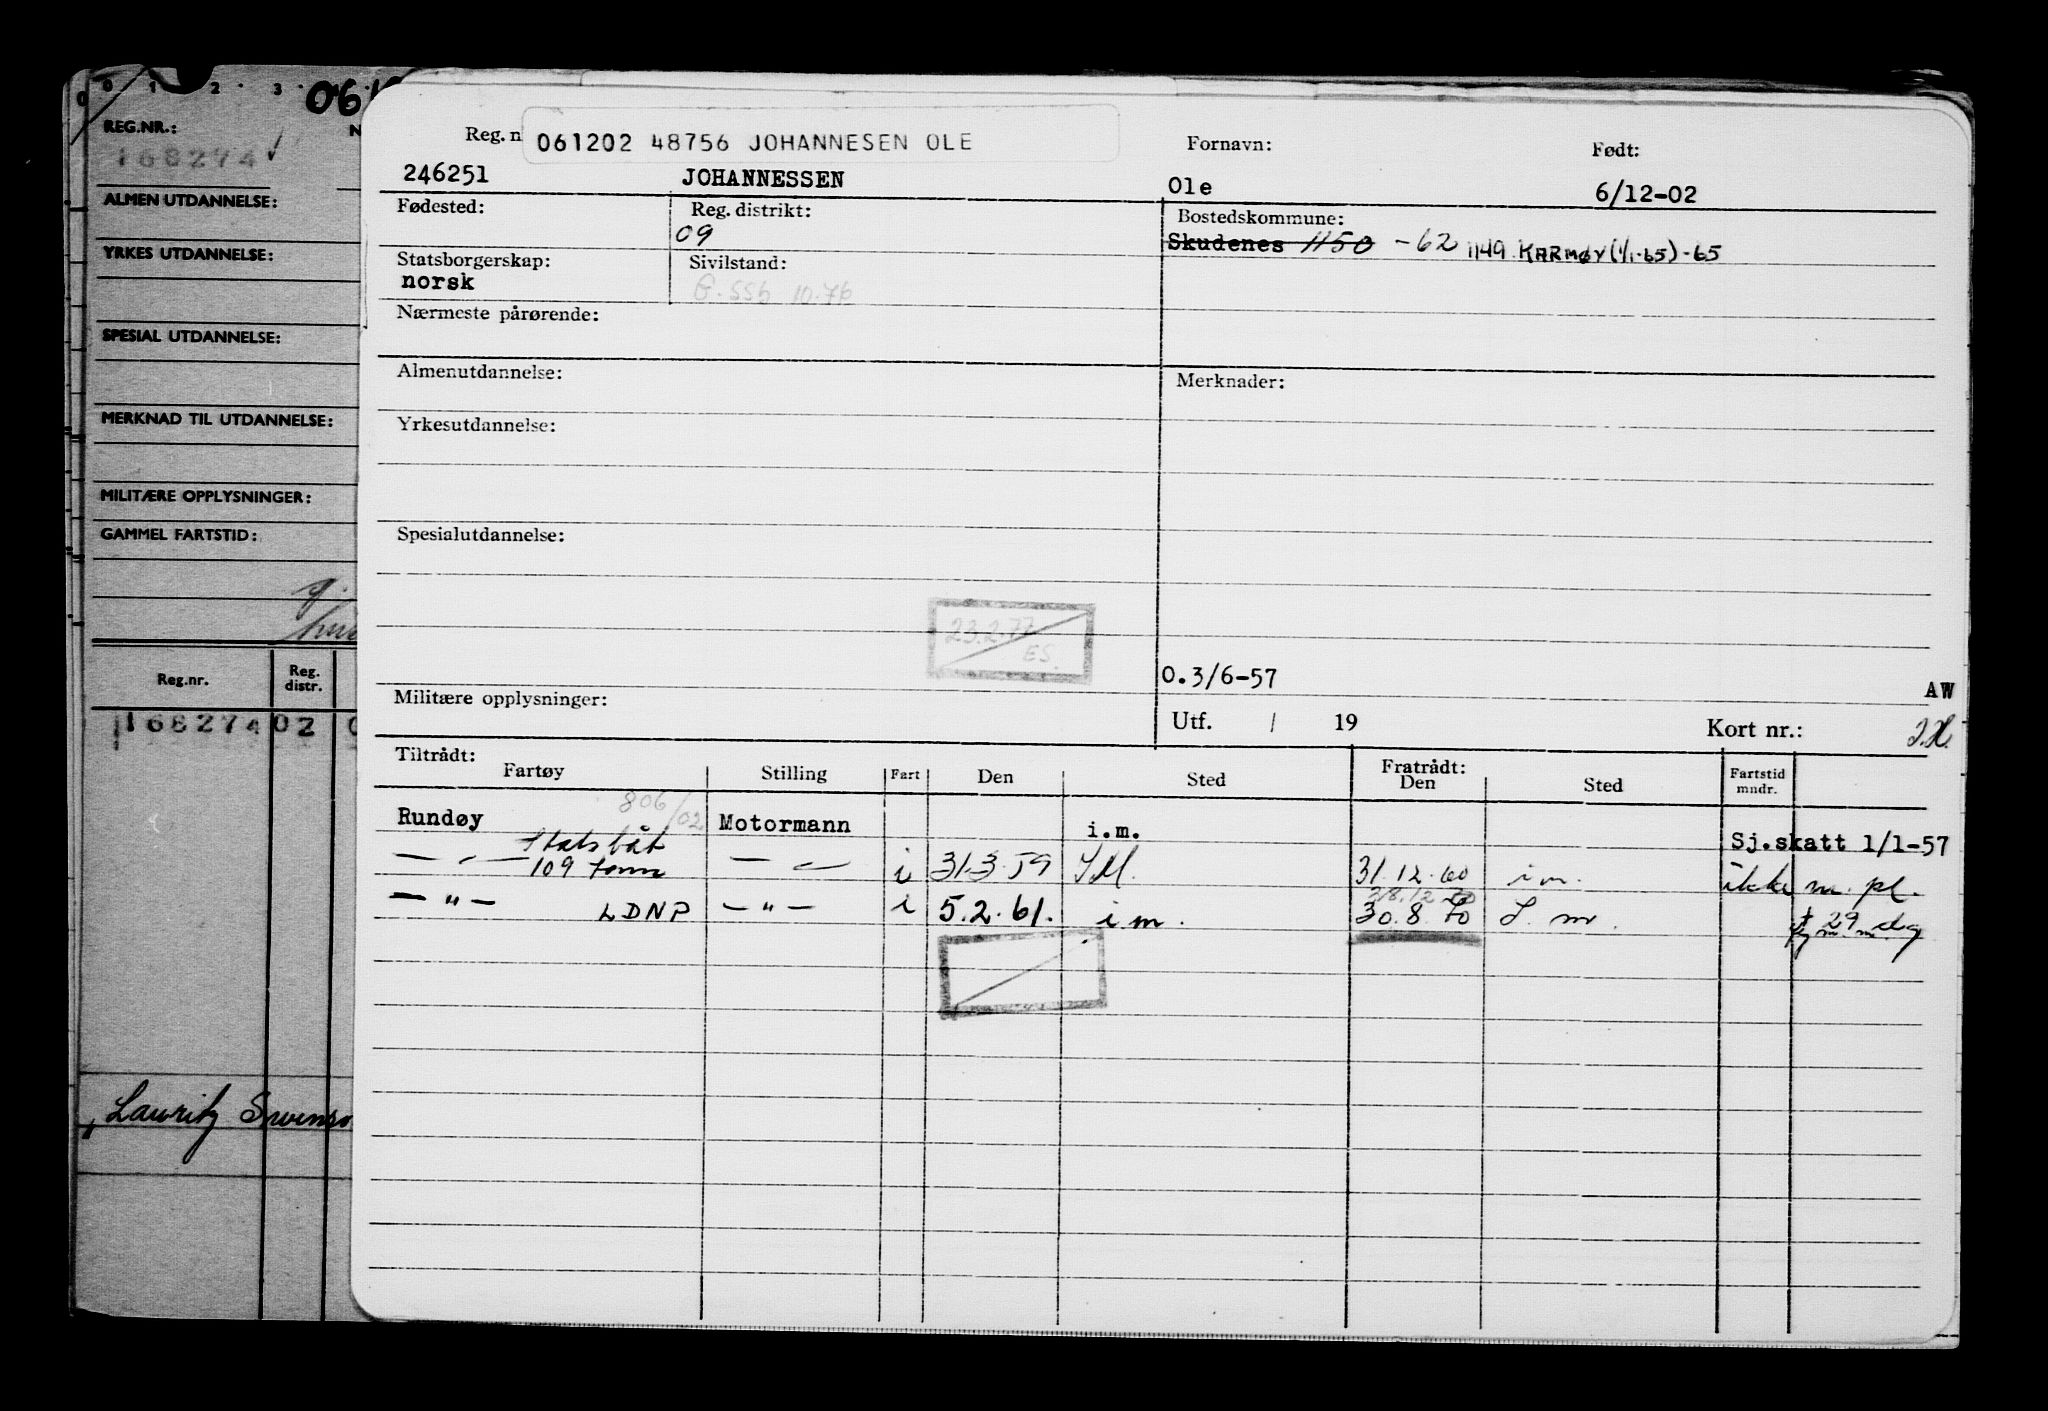 0 0 1 2 3
061
REG.NR.:
N
168274
ALMEN UTDANNELSE:
YRKES UTDANNELSE:
SPESIAL UTDANNELSE:
MERKNAD TIL UTDANNELSE:
MILITÆRE OPPLYSNINGER:
GAMMEL FARTSTID:
Reg.nr. Reg. distr.
168274 02
Lauritz Swenso
Reg. n 061202 48756 JOHANNESEN OLE Fornavn: Født:
246251 JOHANNESSEN Ole 6/12-02
Fødested: Reg. distrikt: Bostedskommune:
09 Skudenes 1150 -62 1149 KARMØY (1/1-65) -65
Statsborgerskap: Sivilstand:
norsk G. SSb 10.76
Nærmeste pårørende:
Almenutdannelse: Merknader:
Yrkesutdannelse:
Spesialutdannelse:
23.2.77
ES.
O.3/6-57
AW
Militære opplysninger: Utf. / 19 Kort nr.:
Tiltrådt: Fratrådt:
Fartøy Stilling Fart Den Sted Den Sted Fartstid mndr.
806/02
Rundøy Motormann i.m. Sj.skatt 1/1-57
Statsbåt
— " — 109 tonn — " — i 31.3.59 I.M. 31.12.60 i m. ikke m. pl.
28.12.70
— " — LDNP — " — i 5.2.61. i m. 30.8.70 I. m. 29 dg